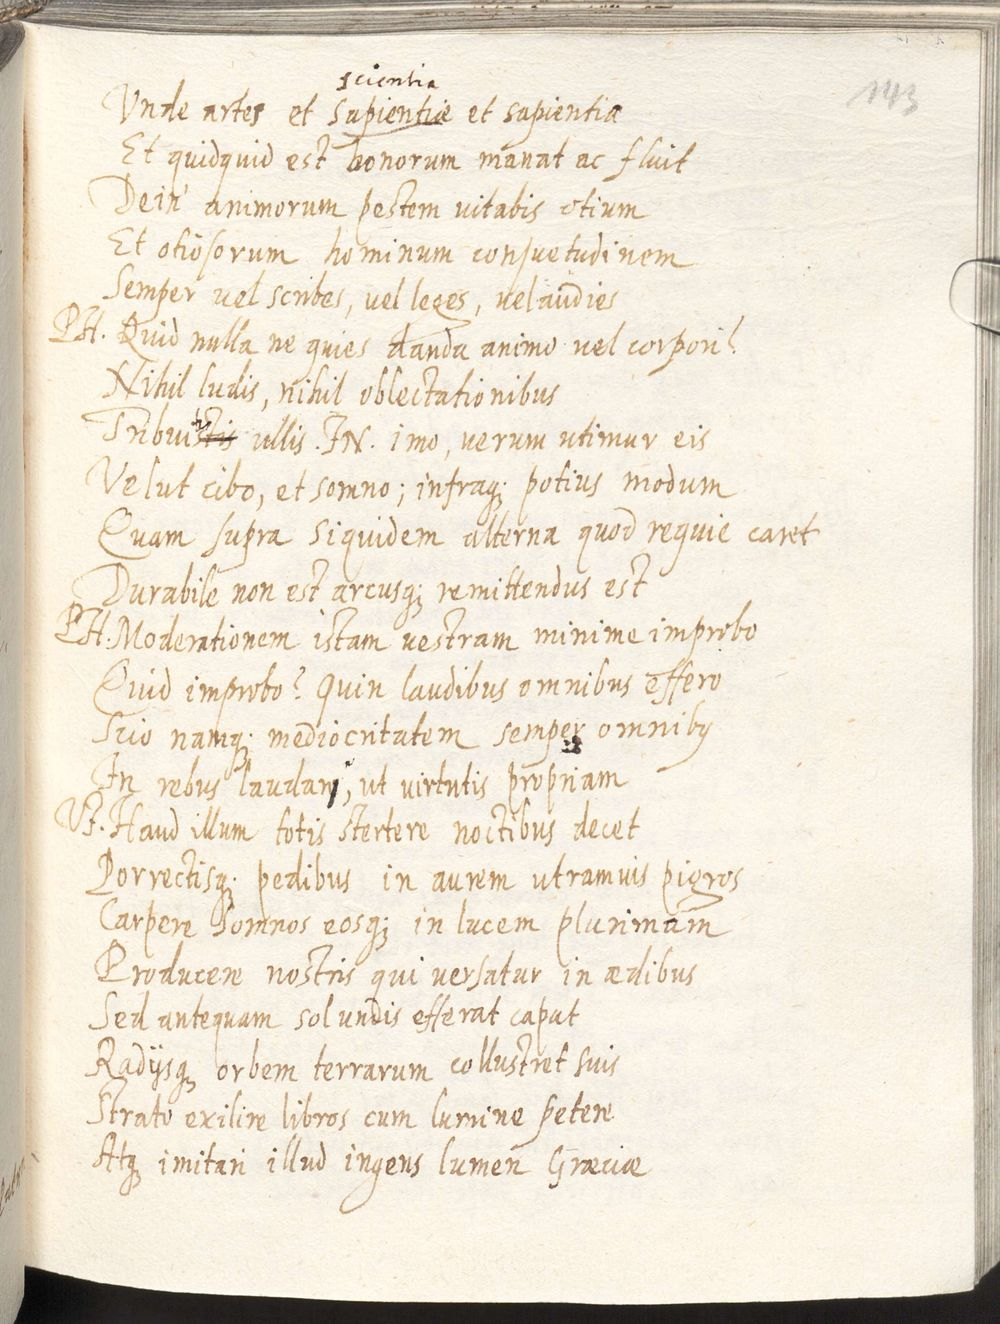 143
scientia
Vnde artes et sapientiæ et sapientia
Et quidquid est bonorum manat ac fluit
Dein' animorum pestem vitabis otium
Et otiosorum hominum consuetudinem
Semper vel scribes, vel leges, vel audies
PH. Quid nulla ne quies danda animo vel corpori?
Nihil ludis, nihil oblectationibus
Tribuistis ullis. IN. imo, verum utimur eis
Velut cibo, et somno; infraq; potius modum
Quam supra siquidem alterna quod requie caret
Durabile non est arcusq; remittendus est
PH. Moderationem istam vestram minime improbo
Quid improbo? quin laudibus omnibus effero
Scio namq; mediocritatem semper omnibus
In rebus laudari, ut virtutis propriam
VI. Haud illum totis stertere noctibus decet
Porrectisq; pedibus in aurem utramvis pigros
Carpere somnos eosq; in lucem plurimam
Producere nostris qui versatur in ædibus
Sed antequam sol undis efferat caput
Radijsq; orbem terrarum collustret suis
Strato exilire libros cum lumine petere
Atq; imitari illud ingens lumen Græciæ